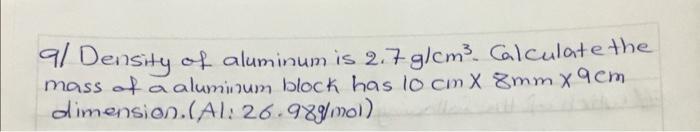 9/ Density of aluminum is 2.7 g/cm³. Calculate the
mass of a aluminum block has 10 cm X 8mm X 9cm
dimension. (Al: 26.98g/mol)